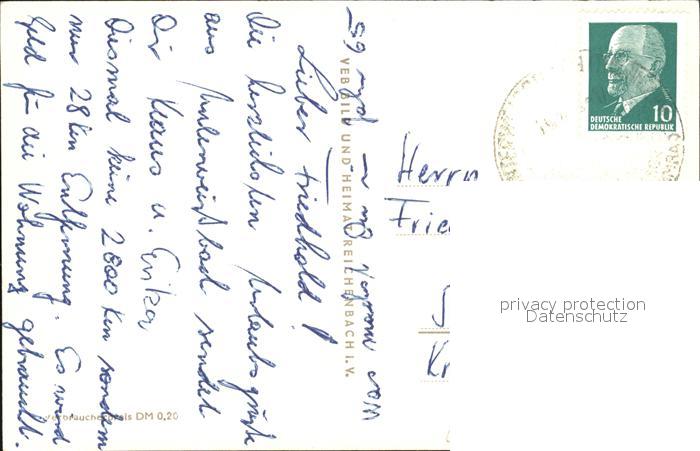 Lieber Friedhold!
Die herzlichsten Urlaubsgrüße
aus sendet
Dir Klaus u. Erika
Diesmal keine 2000 km sondern
nur 28 km Entfernung. Es wird
Geld für die Wohnung gebraucht.
VEB BILD UND HEIMAT REICHENBACH I. V.
Verbraucherpreis DM 0,20
10
DEUTSCHE
DEMOKRATISCHE REPUBLIK
Herrn
Frie
Kr
privacy protection
Datenschutz